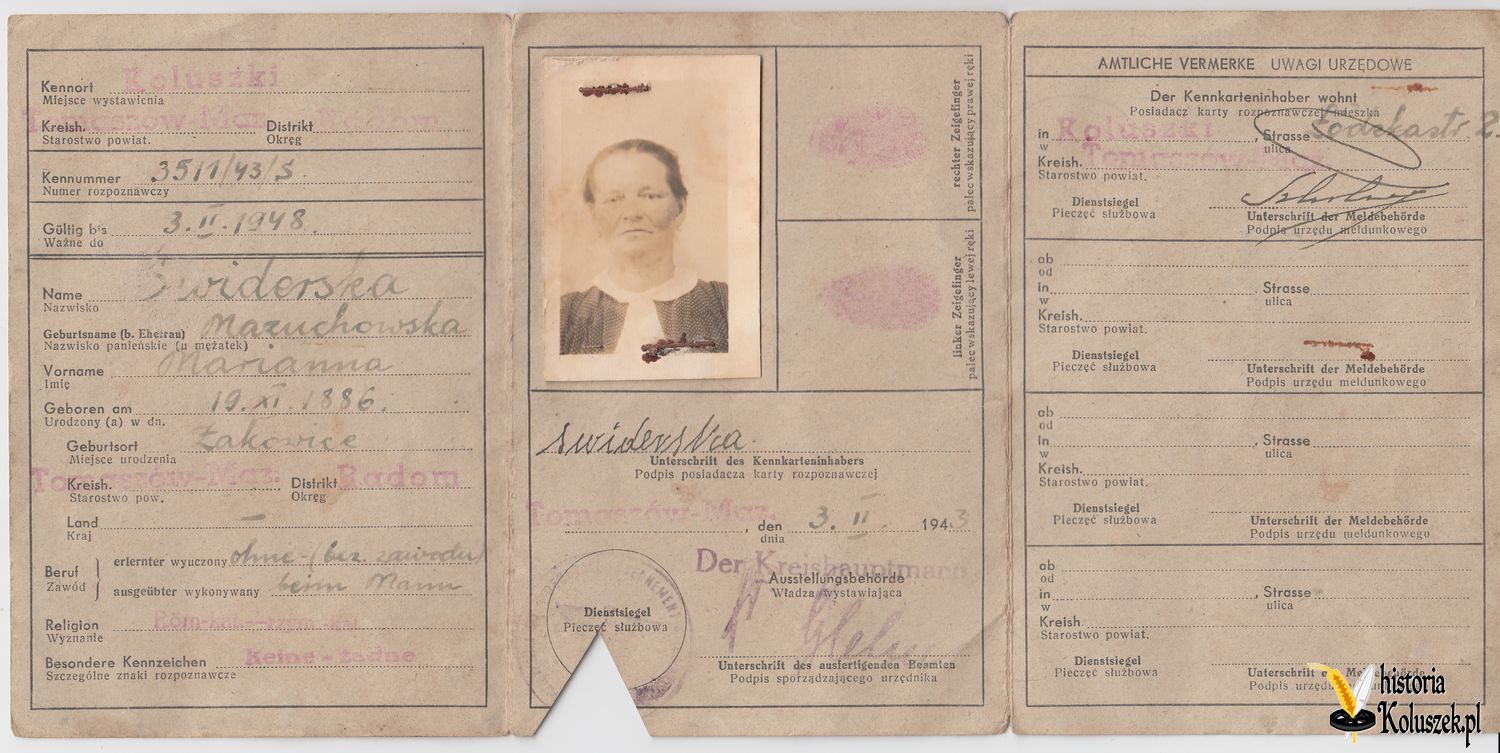 Kennort Koluszki
Miejsce wystawienia
Tomaszów-Maz. Radom
Kreish. Distrikt
Starostwo powiat. Okręg
Kennummer 3511/43/S
Numer rozpoznawczy
Gültig bis 3. II. 1948.
Ważne do
Name Świderska
Nazwisko
Geburtsname (b. Ehefrau) Mazuchowska
Nazwisko panieńskie (u mężatek)
Vorname Marianna
Imię
Geboren am 19. XI. 1886.
Urodzony (a) w dn.
Geburtsort Żakowice
Miejsce urodzenia
Tomaszów-Maz. Radom
Kreish. Distrikt
Starostwo pow. Okręg
Land —
Kraj
Beruf
Zawód
erlernter wyuczony ohne - (bez zawodu)
ausgeübter wykonywany beim Mann
Religion Röm-kat.—rzym.-kat.
Wyznanie
Besondere Kennzeichen Keine - żadne
Szczególne znaki rozpoznawcze
rechter Zeigefinger
palec wskazujący prawej ręki
linker Zeigefinger
palec wskazujący lewej ręki
swiderska
Unterschrift des Kennkarteninhabers
Podpis posiadacza karty rozpoznawczej
Tomaszów-Maz. , den 3. II 1943
dnia
Der Kreishauptmann
Ausstellungsbehörde
Władza wystawiająca
Dienstsiegel
Pieczęć służbowa
Unterschrift des ausfertigenden Beamten
Podpis sporządzającego urzędnika
AMTLICHE VERMERKE UWAGI URZĘDOWE
Der Kennkarteninhaber wohnt
Posiadacz karty rozpoznawczej mieszka
in Koluszki , Strasse Łódzkastr. 2
w ulica
Kreish. Tomaszów-Maz.
Starostwo powiat.
Dienstsiegel
Pieczęć służbowa
Unterschrift der Meldebehörde
Podpis urzędu meldunkowego
ab
od
in , Strasse
w ulica
Kreish.
Starostwo powiat.
Dienstsiegel
Pieczęć służbowa
Unterschrift der Meldebehörde
Podpis urzędu meldunkowego
ab
od
in , Strasse
w ulica
Kreish.
Starostwo powiat.
Dienstsiegel
Pieczęć służbowa
Unterschrift der Meldebehörde
Podpis urzędu meldunkowego
ab
od
in , Strasse
w ulica
Kreish.
Starostwo powiat.
Dienstsiegel
Pieczęć służbowa
Unterschrift der Meldebehörde
Podpis urzędu
historia
Koluszek.pl